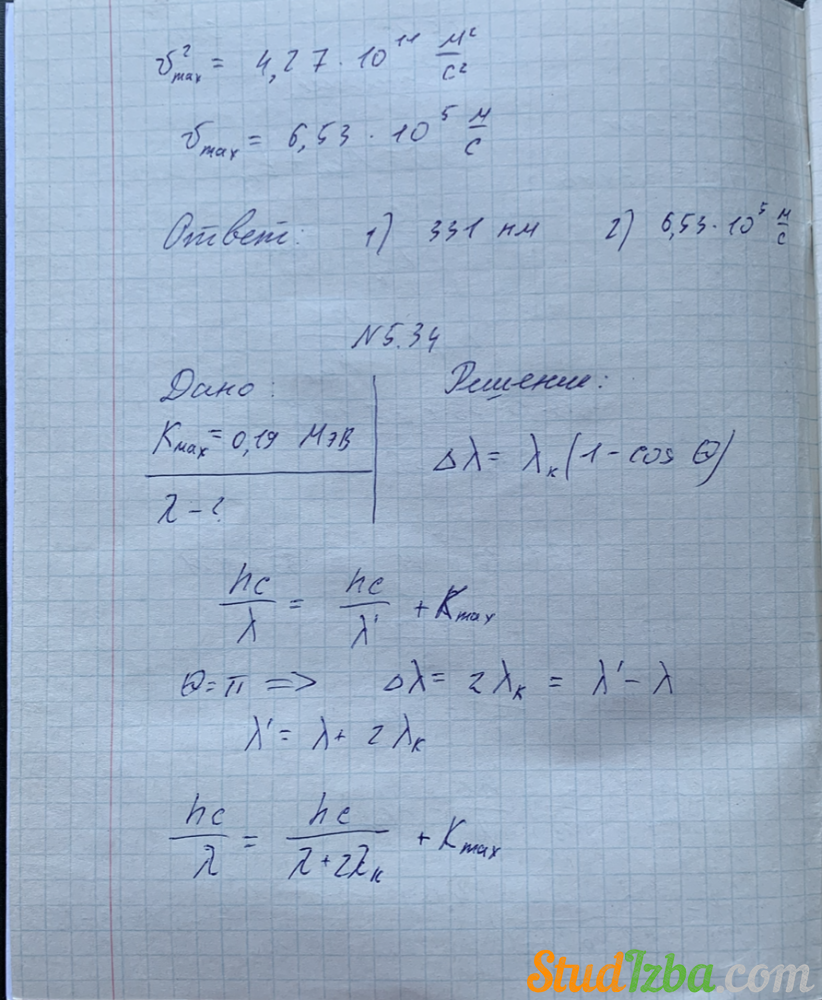 υ²max = 4,27 · 10¹¹ м²/с²
υmax = 6,53 · 10⁵ м/с
Ответ: 1) 331 нм 2) 6,53 · 10⁵ м/с
N5.34
Дано: Решение:
Kmax = 0,19 МэВ Δλ = λк(1 - cos θ)
λ - ?
hc/λ = hc/λ' + Kmax
θ = π => Δλ = 2λк = λ' - λ
λ' = λ + 2λк
hc/λ = hc/(λ + 2λк) + Kmax
StudIzba.com